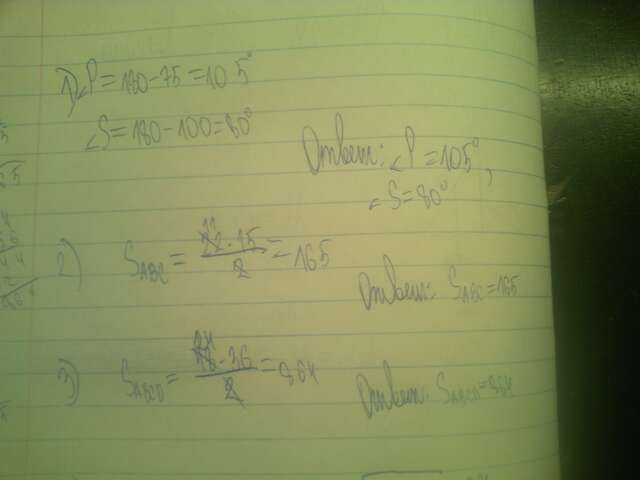 1) ∠P = 180 - 75 = 105°
∠S = 180 - 100 = 80°
Ответ: ∠P = 105°,
∠S = 80°
2) S ABC = 22 · 15 / 2 = 165
Ответ: S ABC = 165
3) S ABCD = 48 · 36 / 2 = 864
Ответ: S ABCD = 864